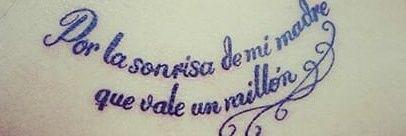 Por la sonrisa de mi madre
que vale un millón